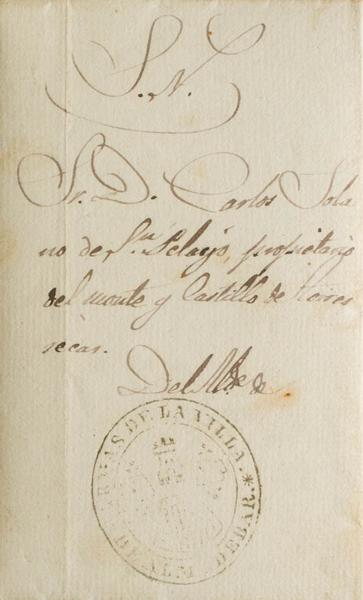 S. N.
Sr. D. Carlos Sola
no de Sn. Pelayo, propietario
del monte y Castillo de Torres
secas.
Del Alde. de
ARMAS DE LA VILLA * DE ALMUDEBAR. *